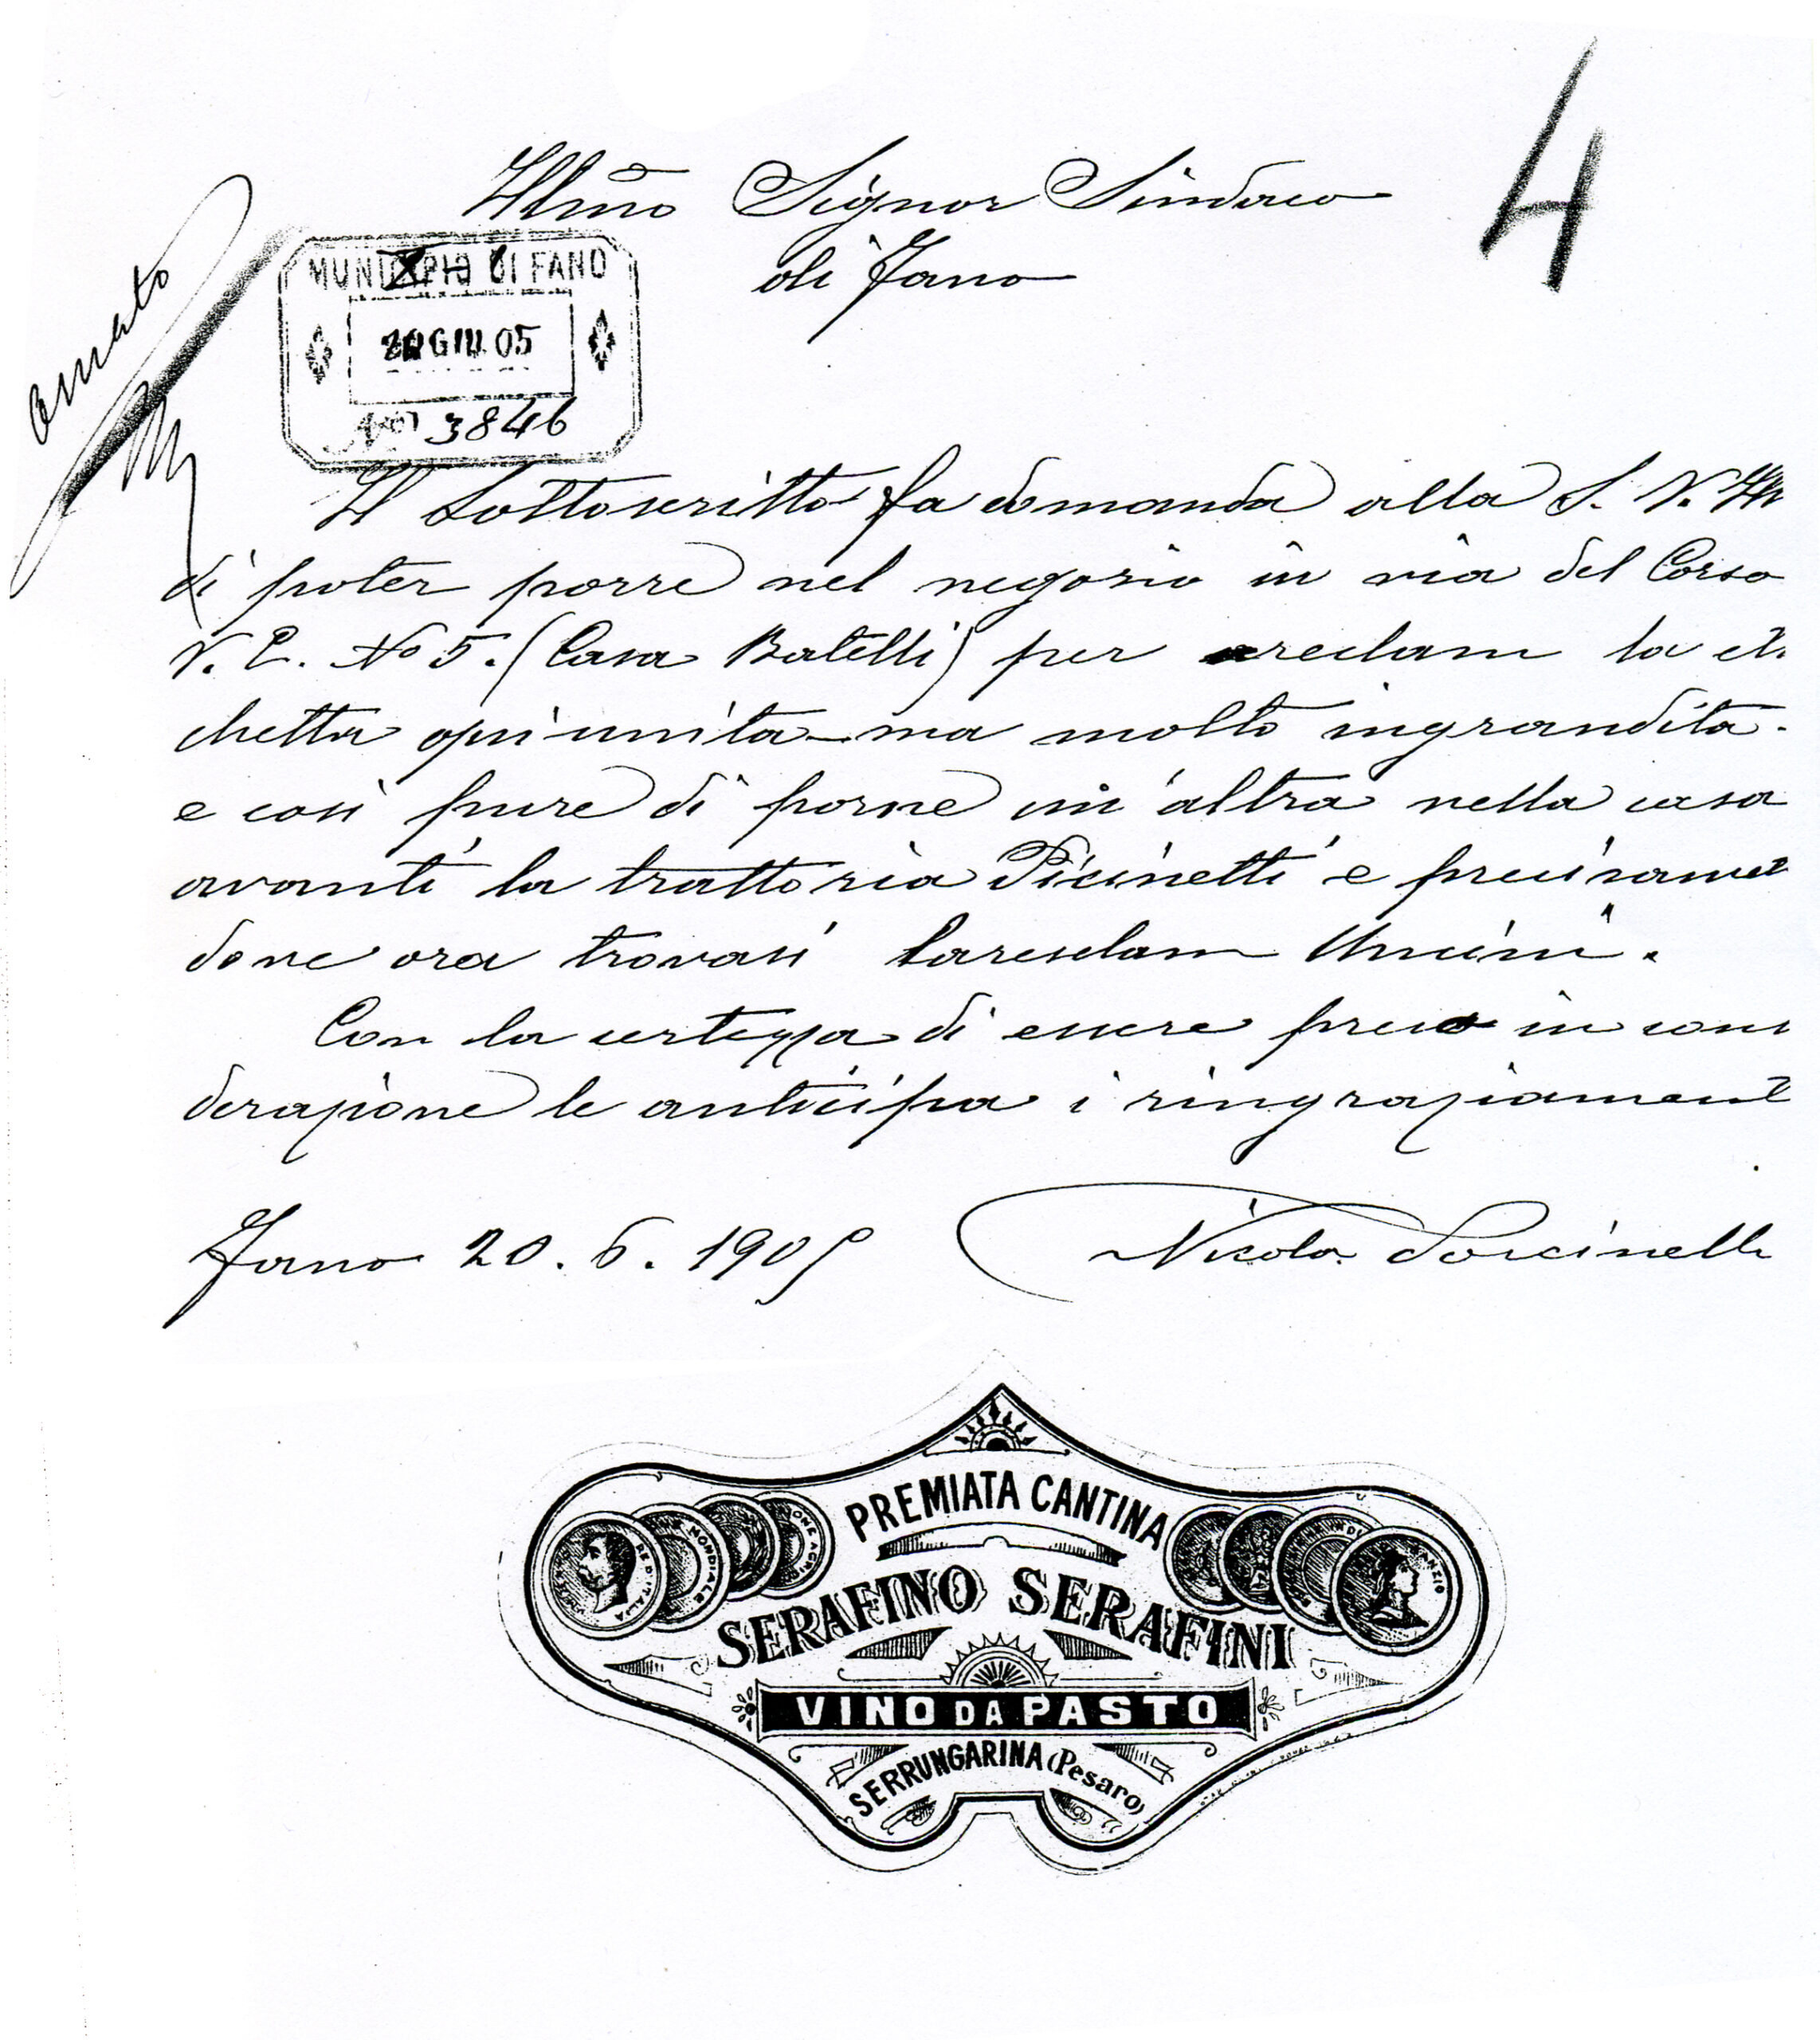 4
Illmo Signor Sindaco
di Fano
MUNICIPIO DI FANO
20 GIU. 05
No 3846
Il Sottoscritto fa domanda alla S. V. Ill
di poter porre nel negozio in via del Corso
V. E. No 5. (Casa Batelli) per reclam la et.
chetta qui unita ma molto ingrandita.
e così pure di porne un'altra nella casa
avanti la trattoria Picinetti e precisamet
dove ora trovasi la reclam Uncini.
Con la certezza di essere preso in consi
derazione le anticipa i ringraziament
Fano 20. 6. 1905 Nicola Sorcinelli
PREMIATA CANTINA
SERAFINO SERAFINI
VINO DA PASTO
SERRUNGARINA (Pesaro)
RE D'ITALIA
MONDIALE